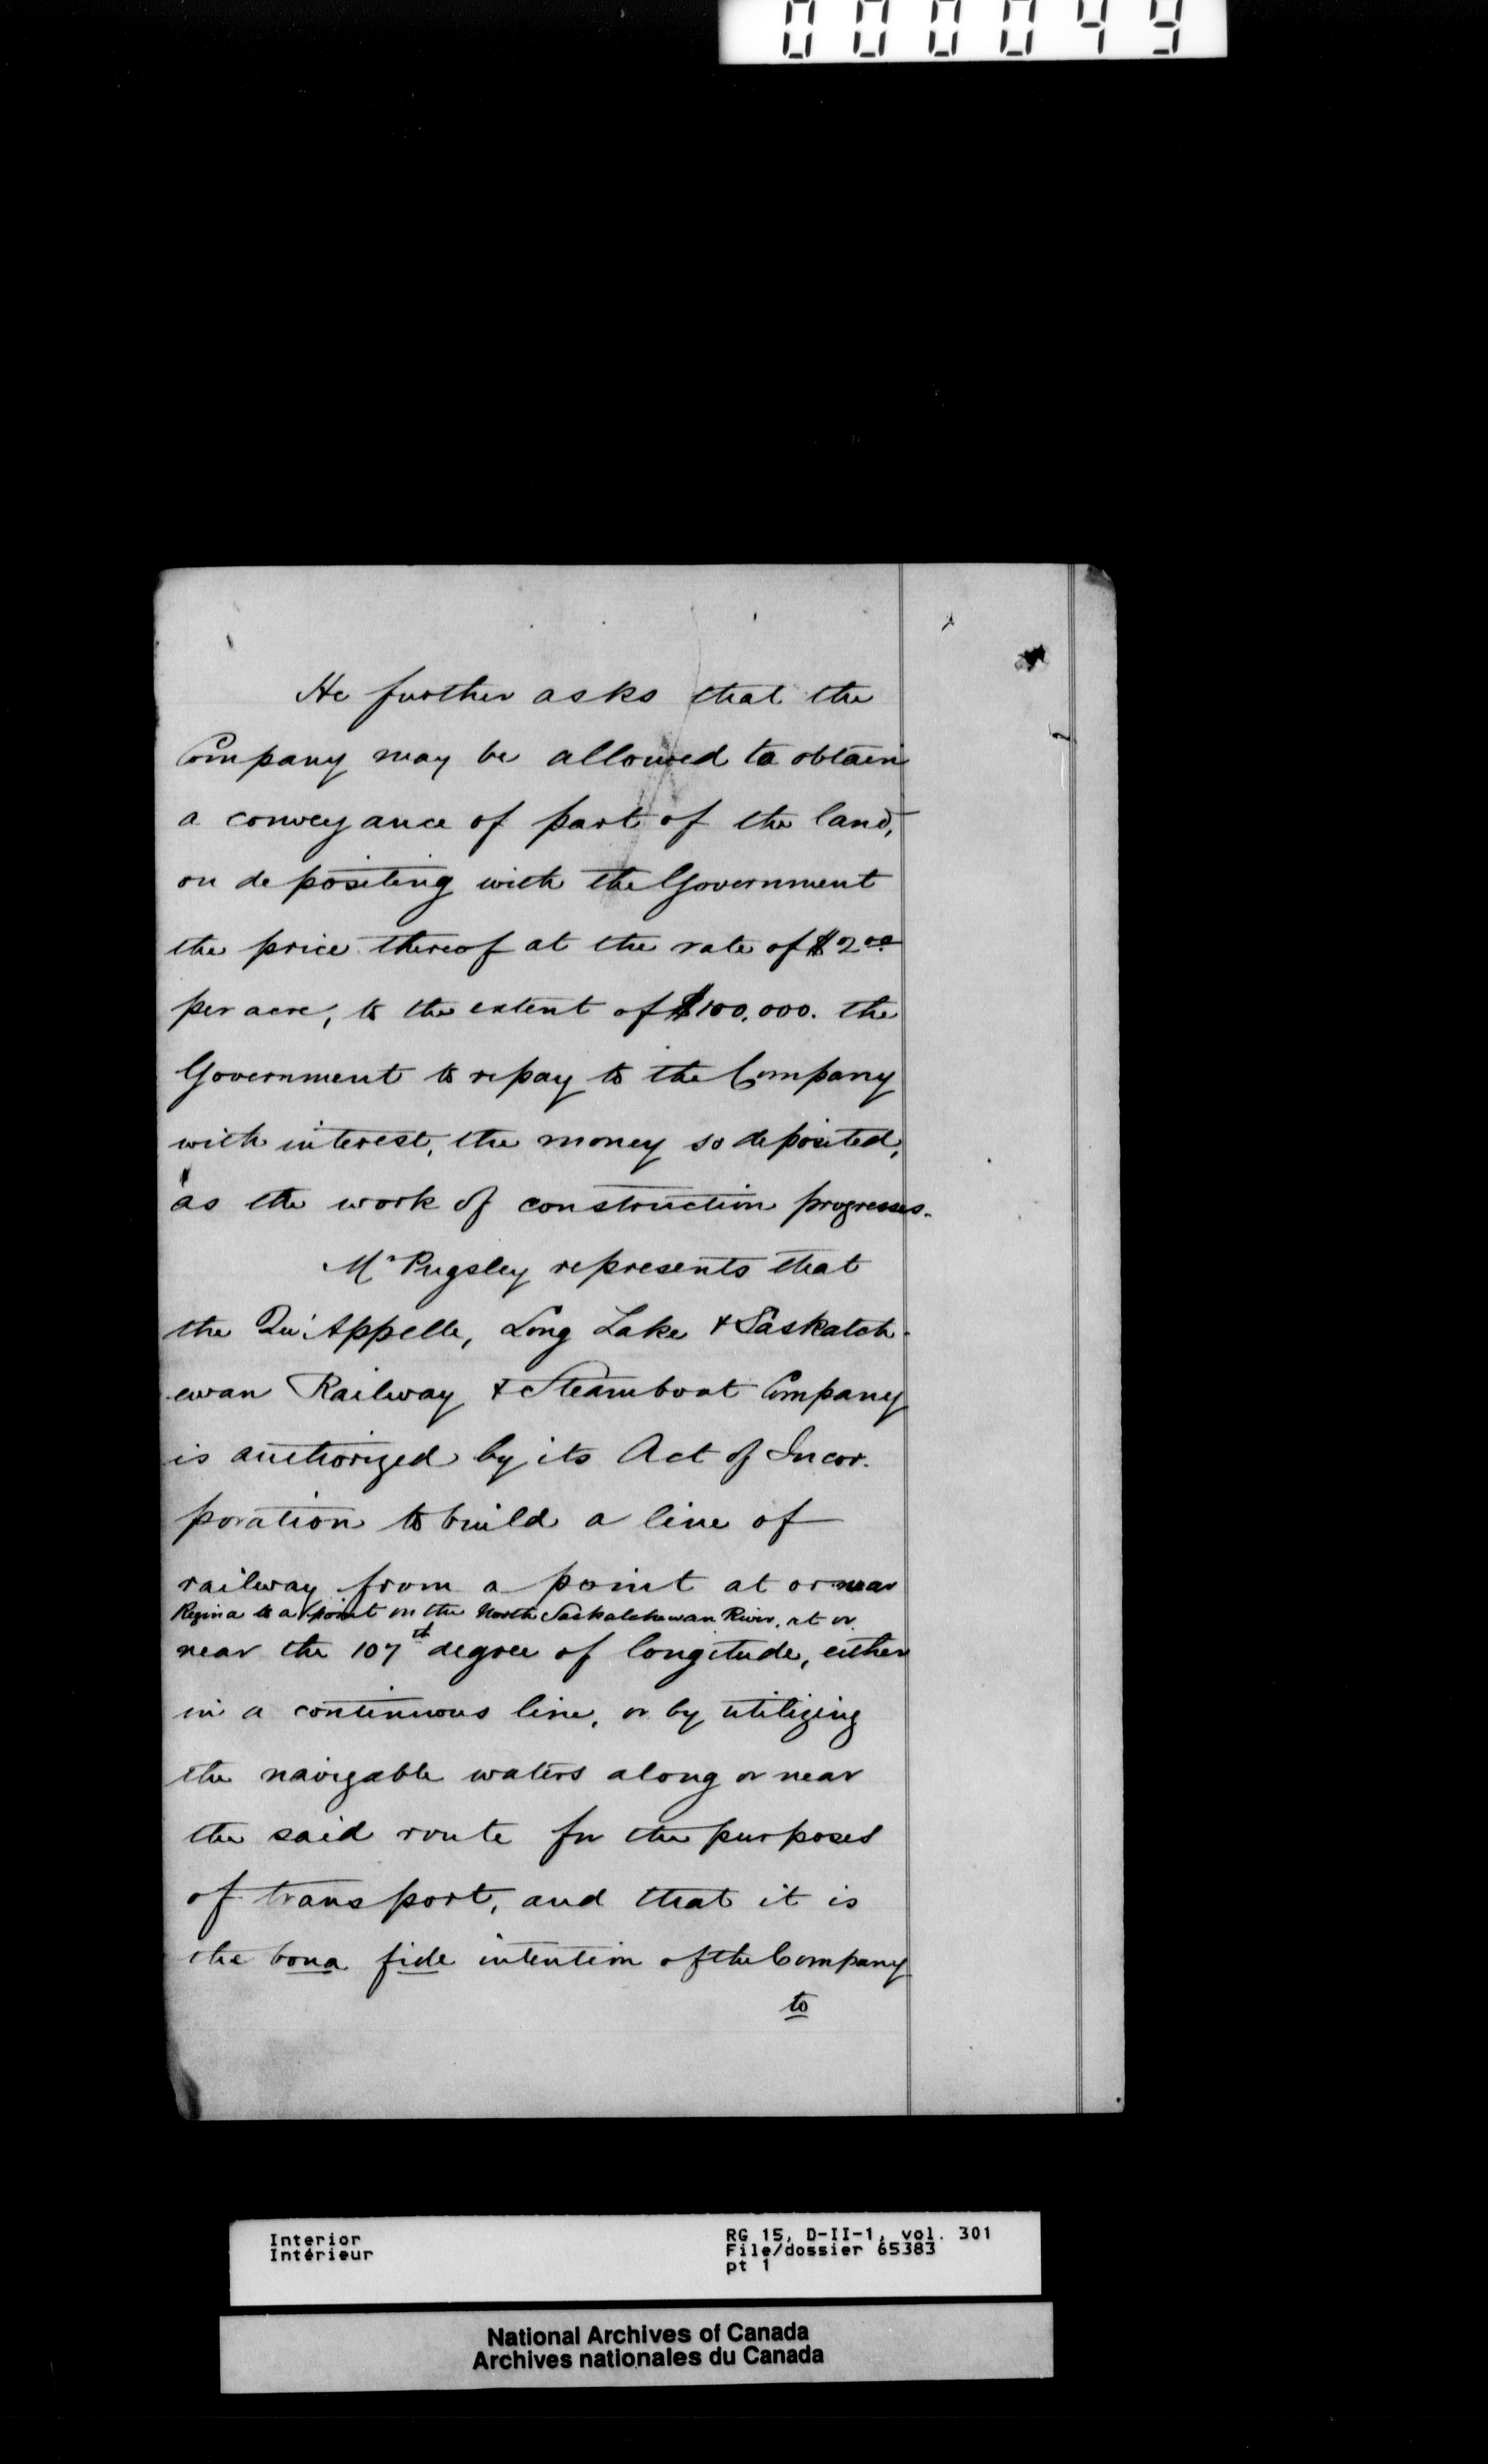 000049
He further asks that the
Company may be allowed to obtain
a conveyance of part of the land,
on depositing with the Government
the price thereof at the rate of $2.00
per acre, to the extent of $100,000. the
Government to repay to the Company
with interest, the money so deposited,
as the work of construction progresses.
Mr Pugsley represents that
the Qu'Appelle, Long Lake & Saskatch-
ewan Railway & Steamboat Company
is authorized by its Act of Incor-
poration to build a line of
railway from a point at or near
Regina to a point on the North Saskatchewan River, at or
near the 107th degree of longitude, either
in a continuous line, or by utilizing
the navigable waters along or near
the said route for the purposes
of transport, and that it is
the bona fide intention of the Company
to
Interior
Intérieur
RG 15, D-II-1, vol. 301
File/dossier 65383
pt 1
National Archives of Canada
Archives nationales du Canada